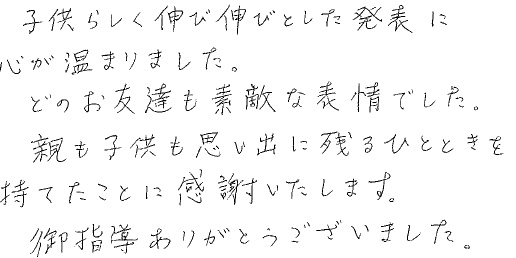 子供らしく伸び伸びとした発表に
心が温まりました。
どのお友達も素敵な表情でした。
親も子供も思い出に残るひとときを
持てたことに感謝いたします。
御指導ありがとうございました。